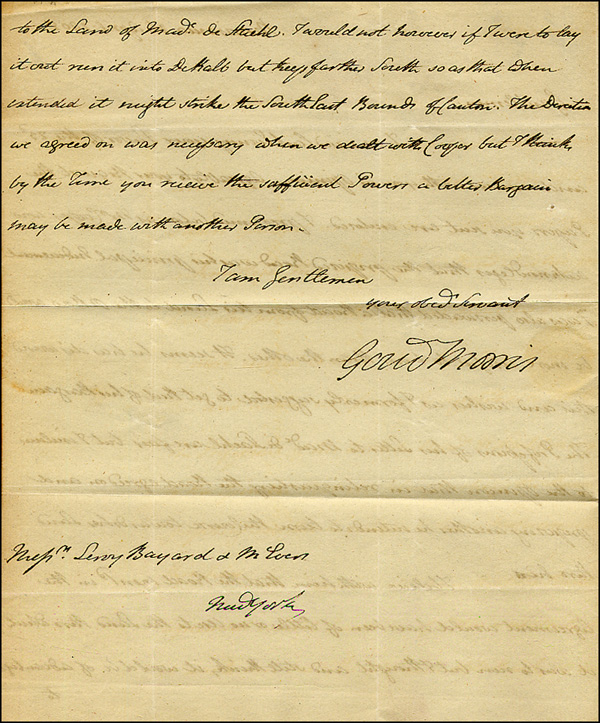 to the Land of Mad.e de Staehl. I would not however if I were to lay
it out run it into DeKalb but keep farther South so as that when
extended it might strike the South East Bounds of Canton. The Direction
we agreed on was necessary when we dealt with Cooper but I think
by the Time you receive the sufficient Powers a better Bargain
may be made with another Person.
I am Gentlemen
your obed.t Servant
Gouv Morris
Mess.rs Leroy Bayard & McEvers
New York